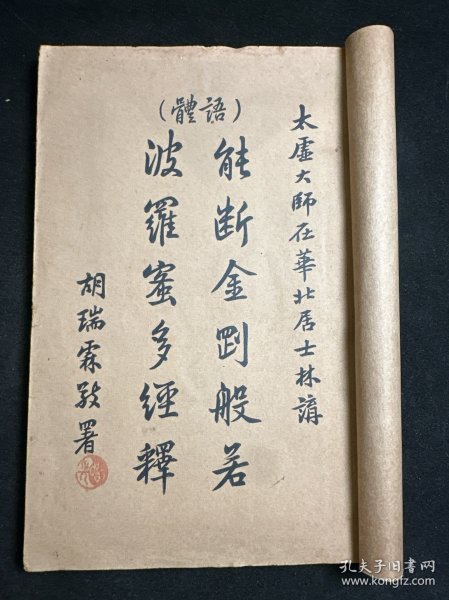 太虛大師在華北居士林講
（語體）
能斷金剛般若
波羅蜜多經釋
胡瑞霖敬署
孔夫子旧书网
www.kongfz.com